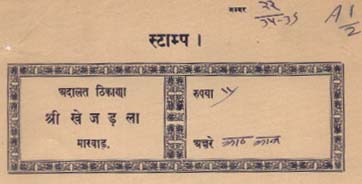 नम्बर २२
३५-३६
A 1/2
स्टाम्प ।
अदालत ठिकाणा
श्री खेजड़ला
मारवाड़.
रुपया
अक्षरे